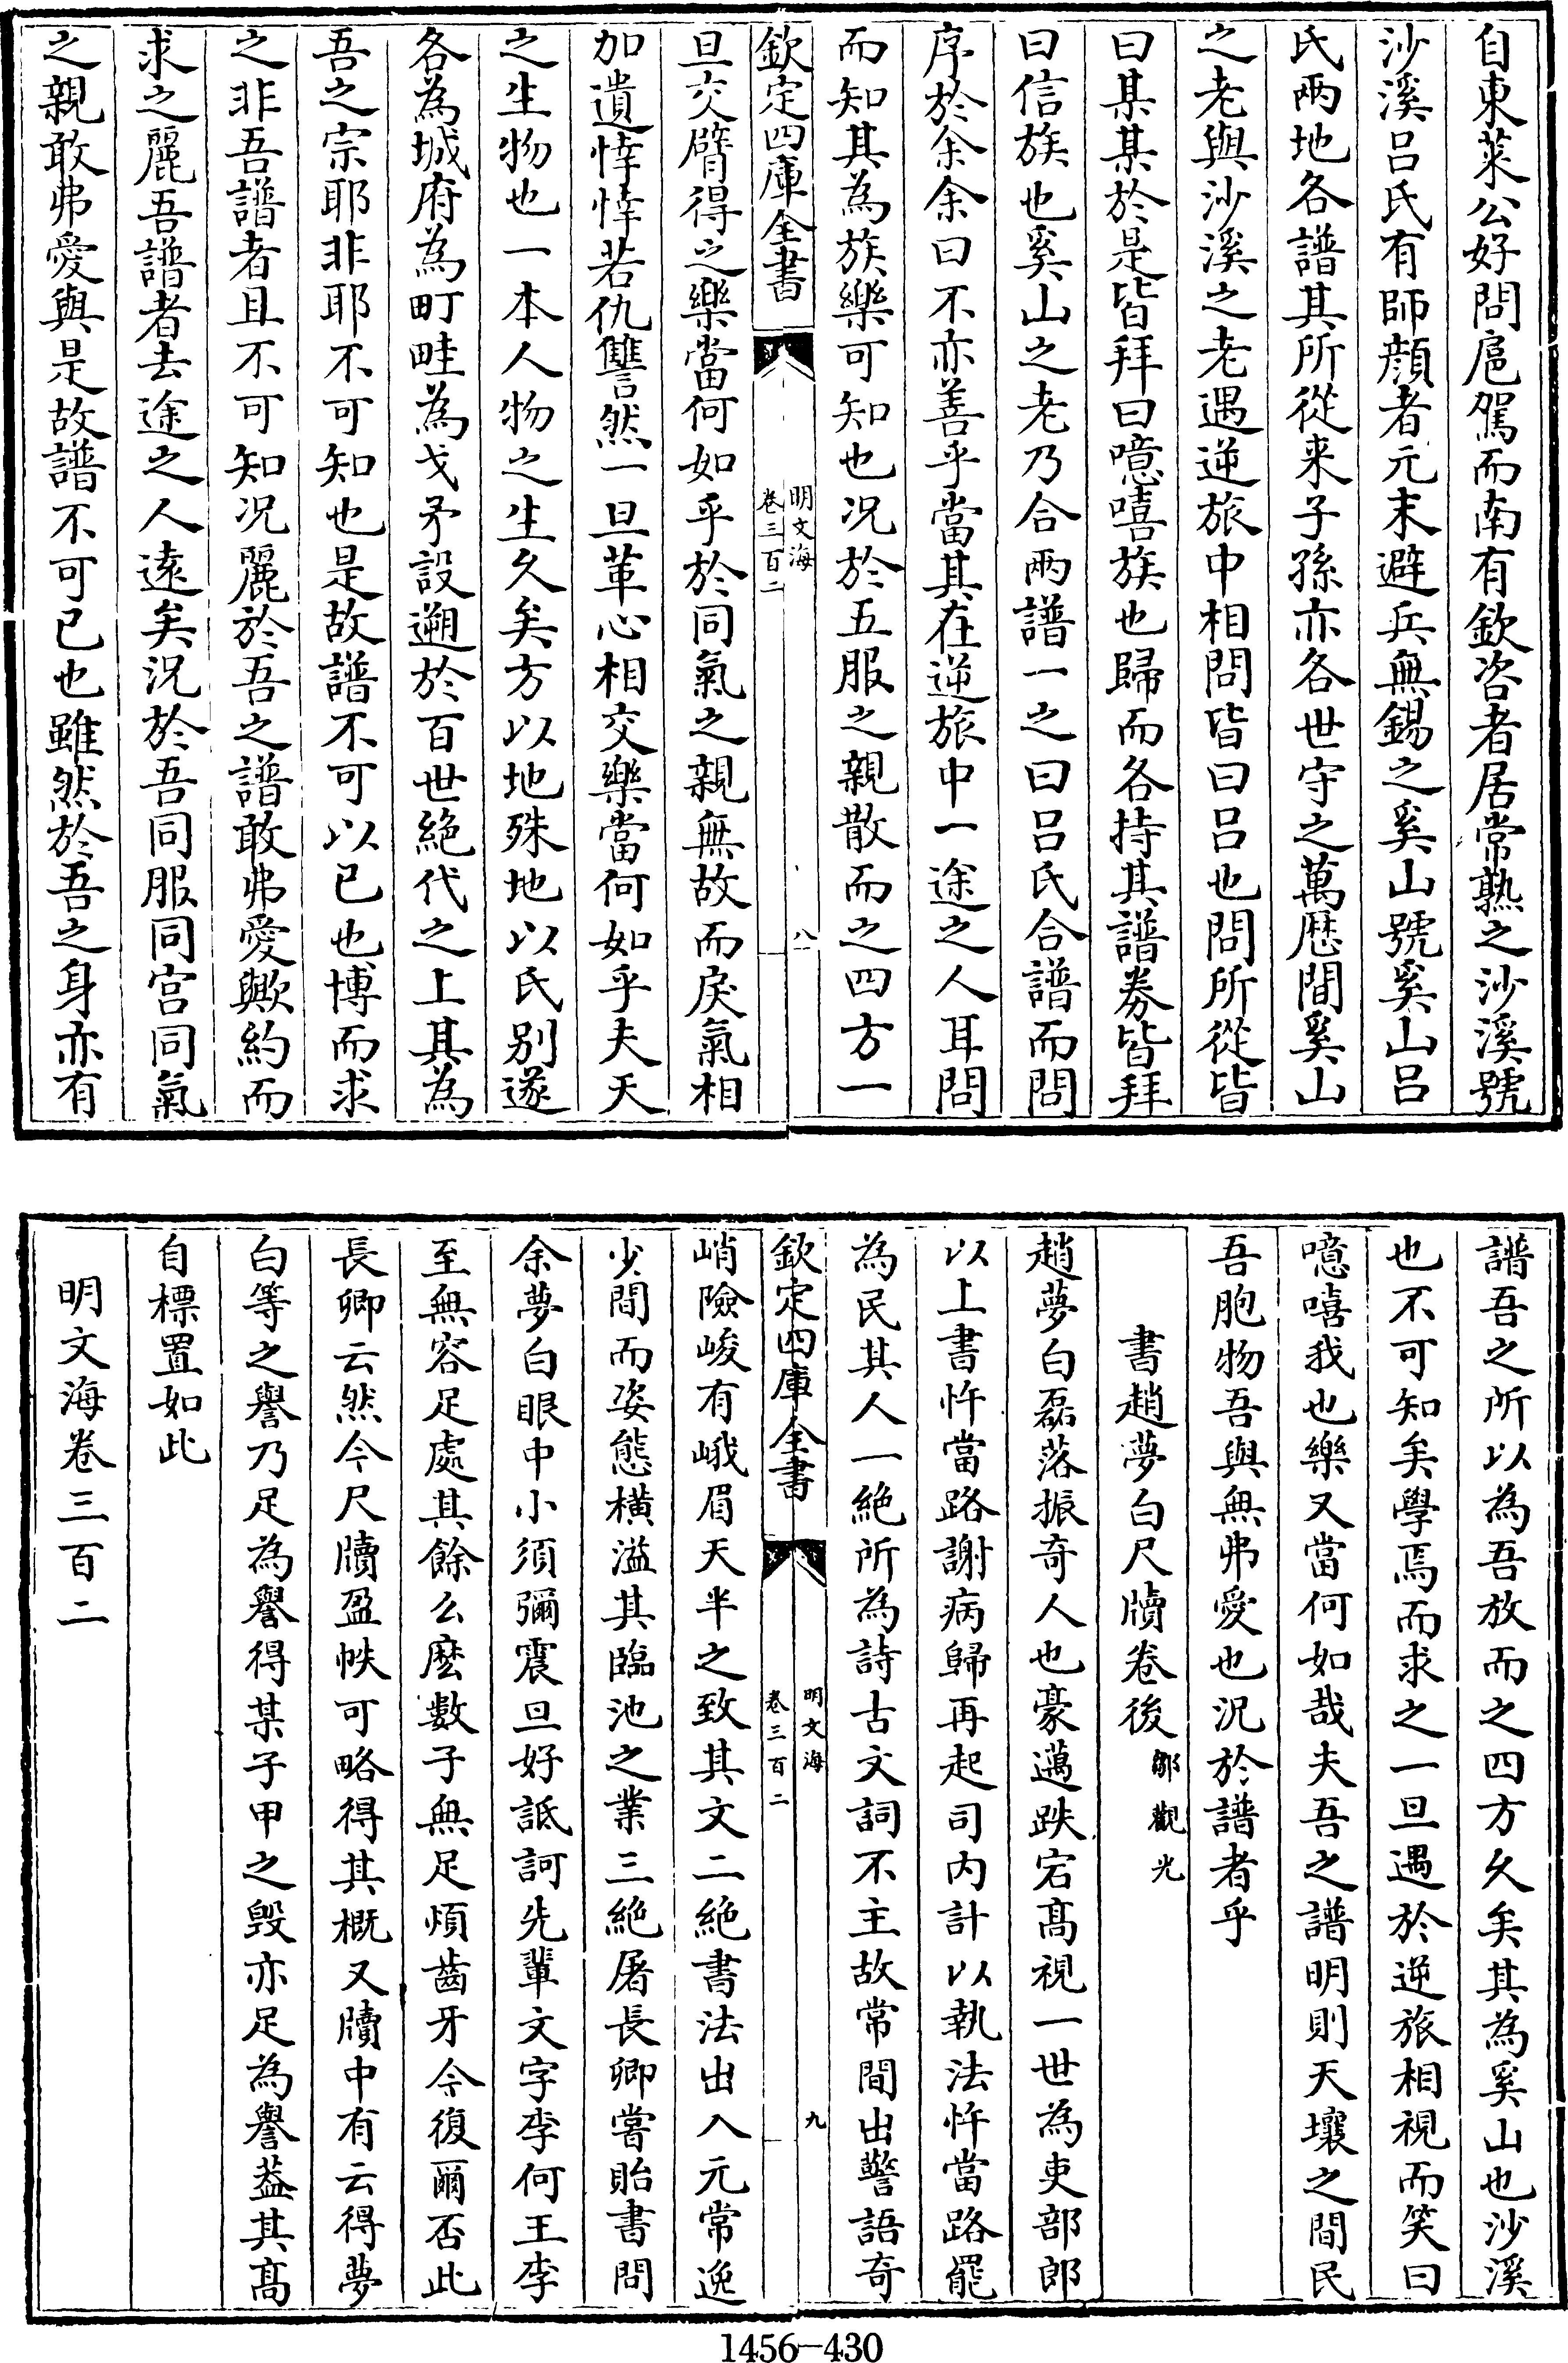 自東萊公好問扈駕而南有欽咨者居常熟之沙溪號
沙溪吕氏有師顔者元末避兵無錫之奚山號奚山吕
氏兩地各譜其所從来子孫亦各世守之萬厯間奚山
之老與沙溪之老遇逆旅中相問皆曰吕也問所從皆
曰某某於是皆拜曰噫嘻族也歸而各持其譜劵皆拜
曰信族也奚山之老乃合兩譜一之曰吕氏合譜而問
序於余余曰不亦善乎當其在逆旅中一途之人耳問
而知其為族樂可知也况於五服之親散而之四方一
欽定四庫全書
明文海
卷三百二
八
旦交臂得之樂當何如乎於同氣之親無故而戾氣相
加遺悻悻若仇讐然一旦革心相交樂當何如乎夫天
之生物也一本人物之生久矣方以地殊地以氏别遂
各為城府為町畦為戈矛設遡於百世絶代之上其為
吾之宗耶非耶不可知也是故譜不可以已也博而求
之非吾譜者且不可知况麗於吾之譜敢弗愛歟約而
求之麗吾譜者去途之人遠矣況於吾同服同宫同氣
之親敢弗愛與是故譜不可已也雖然於吾之身亦有
譜吾之所以為吾放而之四方久矣其為奚山也沙溪
也不可知矣學焉而求之一旦遇於逆旅相視而笑曰
噫嘻我也樂又當何如哉夫吾之譜明則天壤之間民
吾胞物吾與無弗愛也況於譜者乎
書趙夢白尺牘卷後 鄒觀光
趙夢白磊落振奇人也豪邁跌宕髙視一世為吏部郎
以上書忤當路謝病歸再起司内計以執法忤當路罷
為民其人一絶所為詩古文詞不主故常間出警語奇
欽定四庫全書
明文海
卷三百二
九
峭險峻有峨眉天半之致其文二絶書法出入元常逸
少間而姿態横溢其臨池之業三絶屠長卿嘗貽書問
余夢白眼中小須彌震旦好詆訶先輩文字李何王李
至無容足處其餘么麽數子無足煩齒牙今復爾否此
長卿云然今尺牘盈帙可略得其概又牘中有云得夢
白等之譽乃足為譽得某子甲之毁亦足為譽葢其髙
自標置如此
明文海卷三百二
1456-430